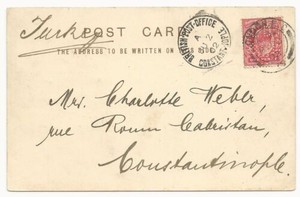 Turkey
POST CARD
THE ADDRESS TO BE WRITTEN ON
BRITISH·POST·OFFICE
CONSTANTINOPLE
Mrs. Charlotte Webb,
rue Roum Cabristan,
Constantinople.